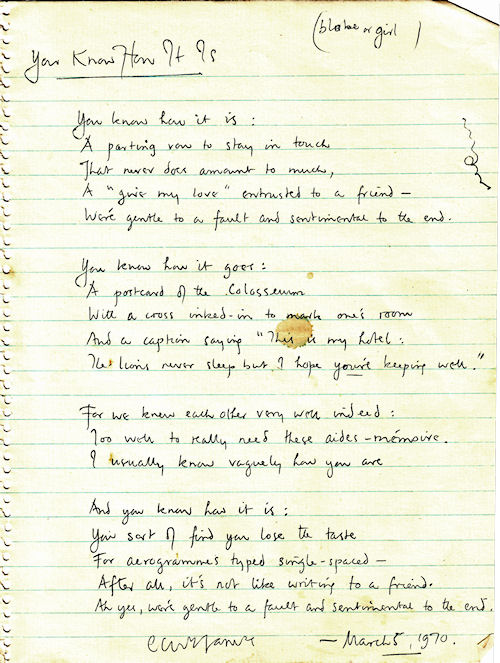 (bloke or girl)
You Know How It Is
You know how it is:
A parting vow to stay in touch
That never does amount to much,
A "give my love" entrusted to a friend —
We're gentle to a fault and sentimental to the end.
You know how it goes:
A postcard of the Colosseum
With a cross inked-in to mark one's room
And a caption saying "This is my hotel:
The lions never sleep but I hope you're keeping well."
For we knew each other very well indeed:
Too well to really need these aides-mémoire.
I usually know vaguely how you are
And you know how it is:
You sort of find you lose the taste
For aerogrammes typed single-spaced —
After all, it's not like writing to a friend.
Ah yes, we're gentle to a fault and sentimental to the end.
— March 5, 1970.